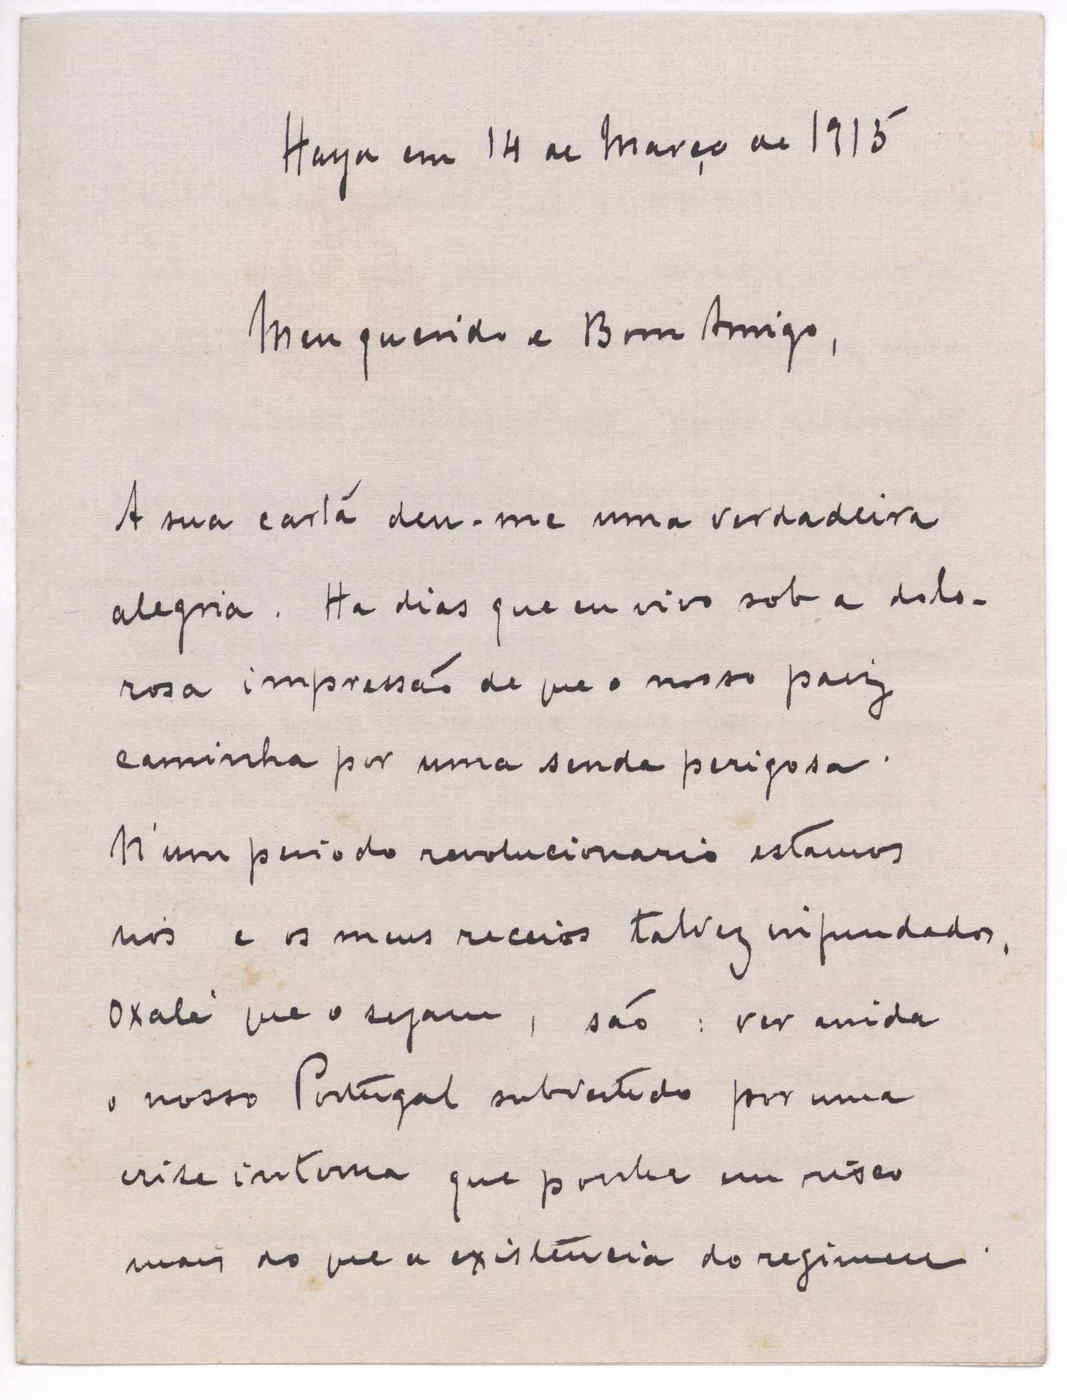 Haya em 14 de Março de 1915
Meu querido e Bom Amigo,
A sua carta deu-me uma verdadeira
alegria. Ha dias que eu vivo sob a dolo-
rosa impressão de que o nosso paiz
caminha por uma senda perigosa.
N'um periodo revolucionario estamos
nós e os meus receios talvez infundados,
oxalá que o sejam, são: ver ainda
o nosso Portugal subvertido por uma
crise interna que ponha em risco
mais do que a existência do regimen.